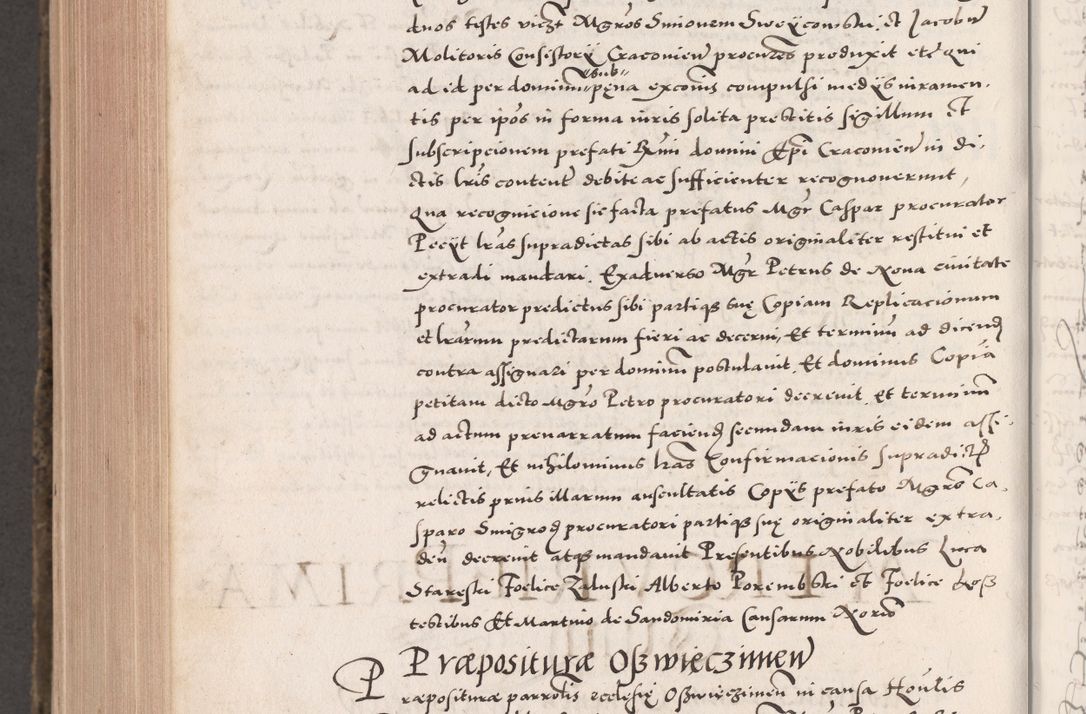 duos testes viczt Mgros Simonem Sweyconski et Jacobum
Molitoris Consistorij Cracovien procures produxit etc Qui
ad id per dominum sub pena exconis compulsi medijs iuramen-
tis per ipos in forma iuris solita prestitis sigillum et
subscripcionem prefati Rmi domini Epi Cracovien in di-
ctis lris content debite ac sufficienter recognoverunt,
Qua recognicione sic facta prefatus Mgr Caspar procurator
Peeijt lras supradictas sibi ab actis originaliter restitui et
extradi mandari. Exadverso Mgr Petrus de Nova civitate
procurator predictus sibi partiq suę Copiam Replicacionum
et lrarum predictarum fieri ac decerni, Et terminum ad dicend
contra assignari per dominum postulavit. Et dominus Copia
petitam dicto Mgro Petro procuratori decrevit. et terminum
ad actum prenarratum faciend secundam iuris eidem assi-
gnavit, Et nihilominus lras Confirmacionis supradict
relictis prius illarum auscultatis Copijs prefato Mgro Ca-
sparo procuratori partiq suę originaliter extra-
den decrevit atq mandavit Presentibus Nobilibus Luca
Stareski Foelice Zaluski Alberto Porembski et Foelice
testibus Et Martino de Sandomiria Causarum Norio
Præpositurae Oszwięczimen
Præpositurae parrolis ecclesię Oszwięczimen in causa Honlis